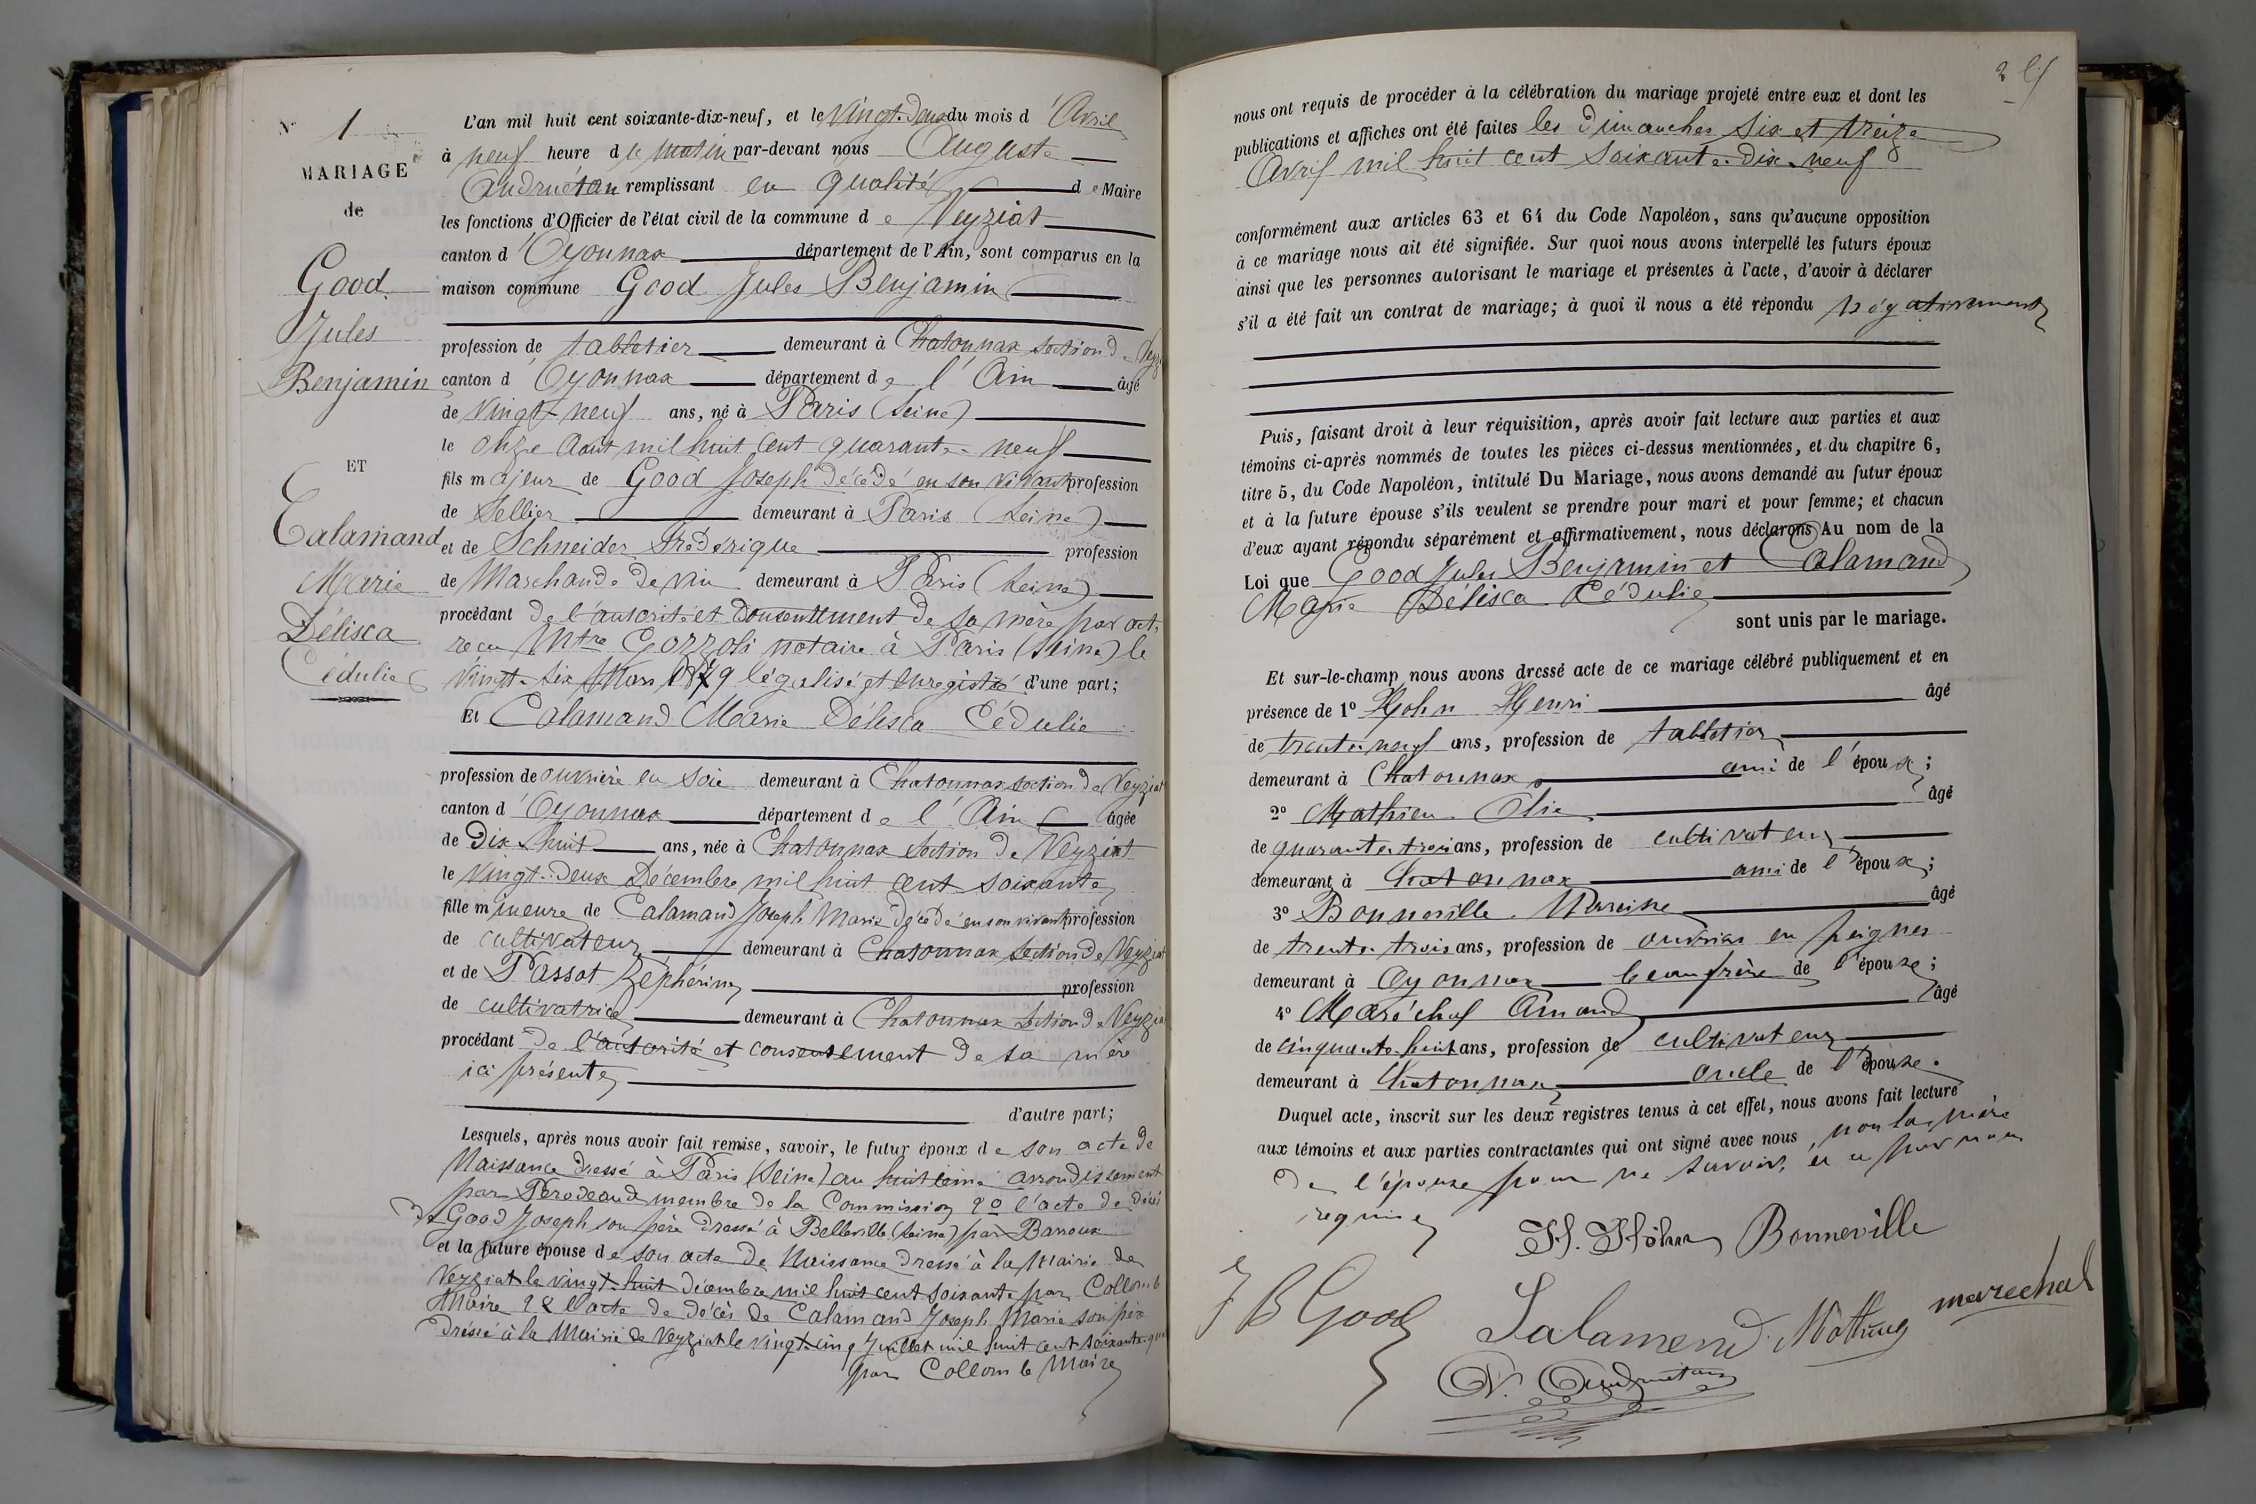 N° 1
MARIAGE
de
Good
Jules
Benjamin
ET
Calamand
Marie
Délisca
Cédulie
L'an mil huit cent soixante-dix-neuf, et le Vingt-deux du mois d'Avril
à neuf heure du matin par-devant nous Auguste
Andruétan remplissant en qualité de Maire
les fonctions d'Officier de l'état civil de la commune de Veyziat
canton d'Oyonnax département de l'Ain, sont comparus en la
maison commune Good Jules Benjamin
profession de tabletier demeurant à Chatonnax section de Veyz
canton d'Oyonnax département de l'Ain âgé
de Vingt-neuf ans, né à Paris (Seine)
le onze Août mil huit cent quarante-neuf
fils majeur de Good Joseph décédé en son vivant profession
de Sellier demeurant à Paris (Seine)
et de Schneider Frédérique profession
de Marchande de vin demeurant à Paris (Seine)
procédant de l'autorité et consentement de sa mère par acte
reçu Mtre Gozzoli notaire à Paris (Seine) le
Vingt-six Mars 1879 légalisé et enregistré d'une part;
Et Calamand Marie Délisca Cédulie
profession de ouvrière en soie demeurant à Chatonnax section de Veyziat
canton d'Oyonnax département de l'Ain âgée
de Dix huit ans, née à Chatonnax section de Veyziat
le Vingt-deux Décembre mil huit cent soixante
fille mineure de Calamand Joseph Marie décédé en son vivant profession
de cultivateur demeurant à Chatonnax section de Veyziat
et de Passot Zéphérine profession
de cultivatrice demeurant à Chatonnax section de Veyziat
procédant de l'autorité et consentement de sa mère
ici présente
d'autre part;
Lesquels, après nous avoir fait remise, savoir, le futur époux de son acte de
Naissance dressé à Paris (Seine) au huitième arrondissement
par membre de la Commission 2° l'acte de décès
de Good Joseph son père dressé à Belleville (Seine) par Barroux
et la future épouse de son acte de Naissance dressé à la Mairie de
Veyziat le vingt-huit décembre mil huit cent soixante par Collomb
Maire 2° l'acte de décès de Calamand Joseph Marie son père
dressé à la Mairie de Veyziat le vingt-cinq Juillet mil huit cent soixante
par Collomb Maire
2
nous ont requis de procéder à la célébration du mariage projeté entre eux et dont les
publications et affiches ont été faites les dimanches six et treize
Avril mil huit cent soixante-dix-neuf
conformément aux articles 63 et 64 du Code Napoléon, sans qu'aucune opposition
à ce mariage nous ait été signifiée. Sur quoi nous avons interpellé les futurs époux
ainsi que les personnes autorisant le mariage et présentes à l'acte, d'avoir à déclarer
s'il a été fait un contrat de mariage; à quoi il nous a été répondu négativement
Puis, faisant droit à leur réquisition, après avoir fait lecture aux parties et aux
témoins ci-après nommés de toutes les pièces ci-dessus mentionnées, et du chapitre 6,
titre 5, du Code Napoléon, intitulé Du Mariage, nous avons demandé au futur époux
et à la future épouse s'ils veulent se prendre pour mari et pour femme; et chacun
d'eux ayant répondu séparément et affirmativement, nous déclarons Au nom de la
Loi que Good Jules Benjamin et Calamand
Marie Délisca Cédulie
sont unis par le mariage.
Et sur-le-champ nous avons dressé acte de ce mariage célébré publiquement et en
présence de 1° Hohn Henri âgé
de trente-neuf ans, profession de tabletier
demeurant à Chatonnax ami de l'époux;
2° Mathieu Elie âgé
de quarante-trois ans, profession de cultivateur
demeurant à Chatonnax ami de l'époux;
3° Bonneville Narcisse âgé
de trente-trois ans, profession de ouvrier en peignes
demeurant à Oyonnax beau frère de l'épouse;
4° Maréchal Amand âgé
de cinquante-huit ans, profession de cultivateur
demeurant à Chatonnax oncle de l'épouse.
Duquel acte, inscrit sur les deux registres tenus à cet effet, nous avons fait lecture
aux témoins et aux parties contractantes qui ont signé avec nous, non la mère
de l'épouse pour ne savoir, de ce par nous
requise
H. Höhn Bonneville
J B Good Calamend marechal
A. Andruétan